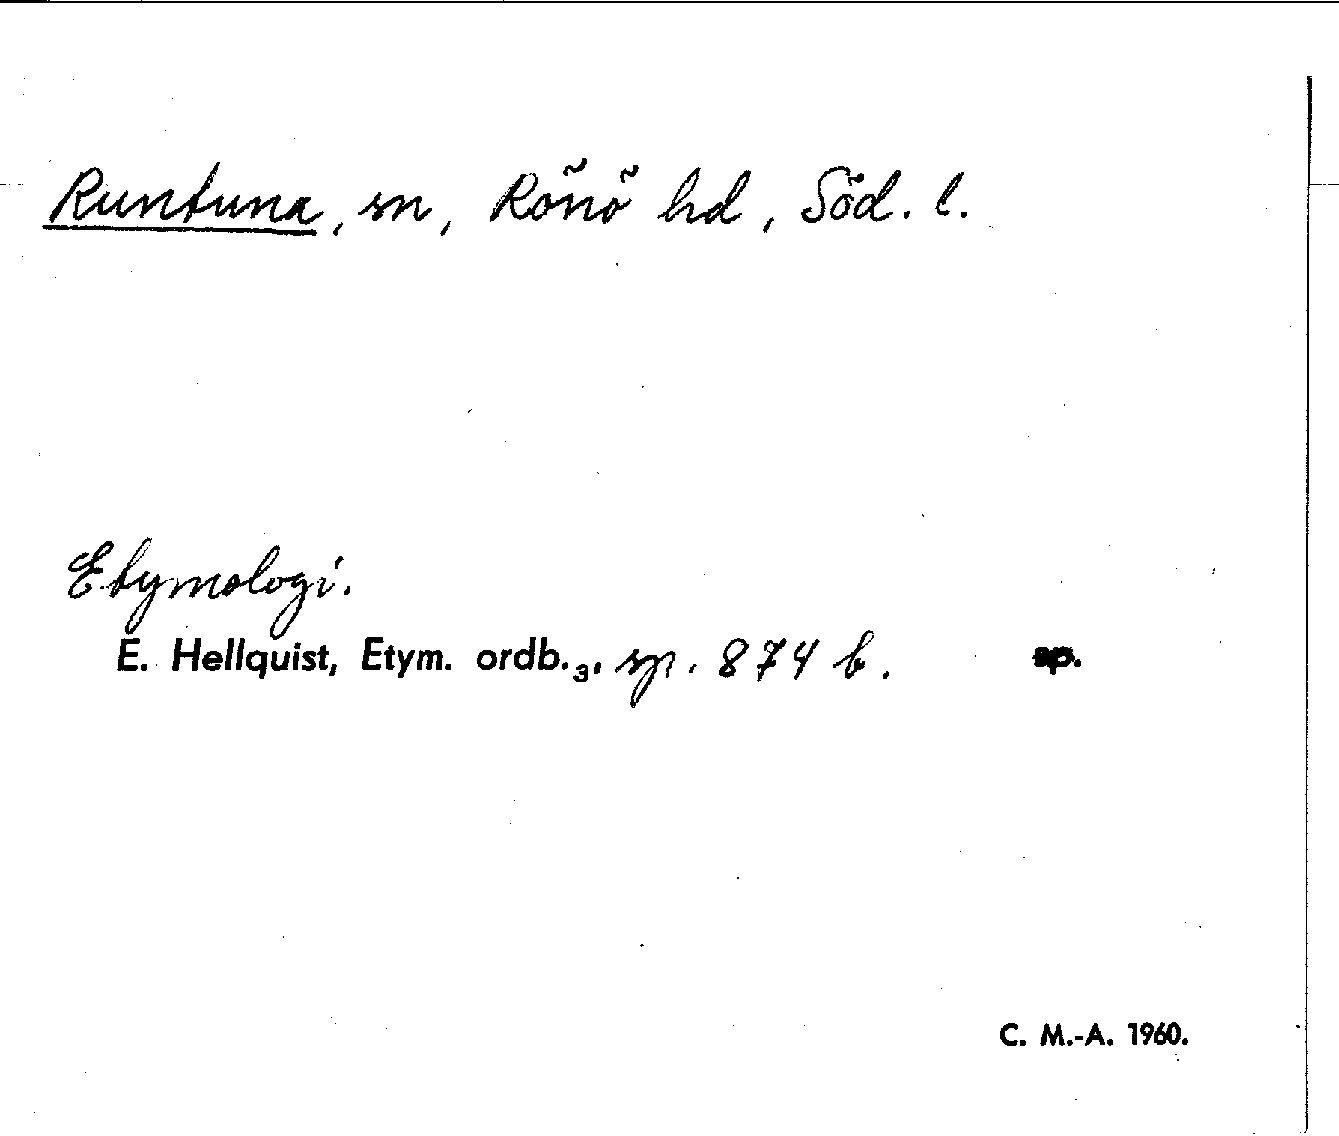 Runtuna, sn, Rönö hd, Söd. l.
Etymologi.
E. Hellquist, Etym. ordb.₃, sp. 874 b. sp.
C. M.-A. 1960.